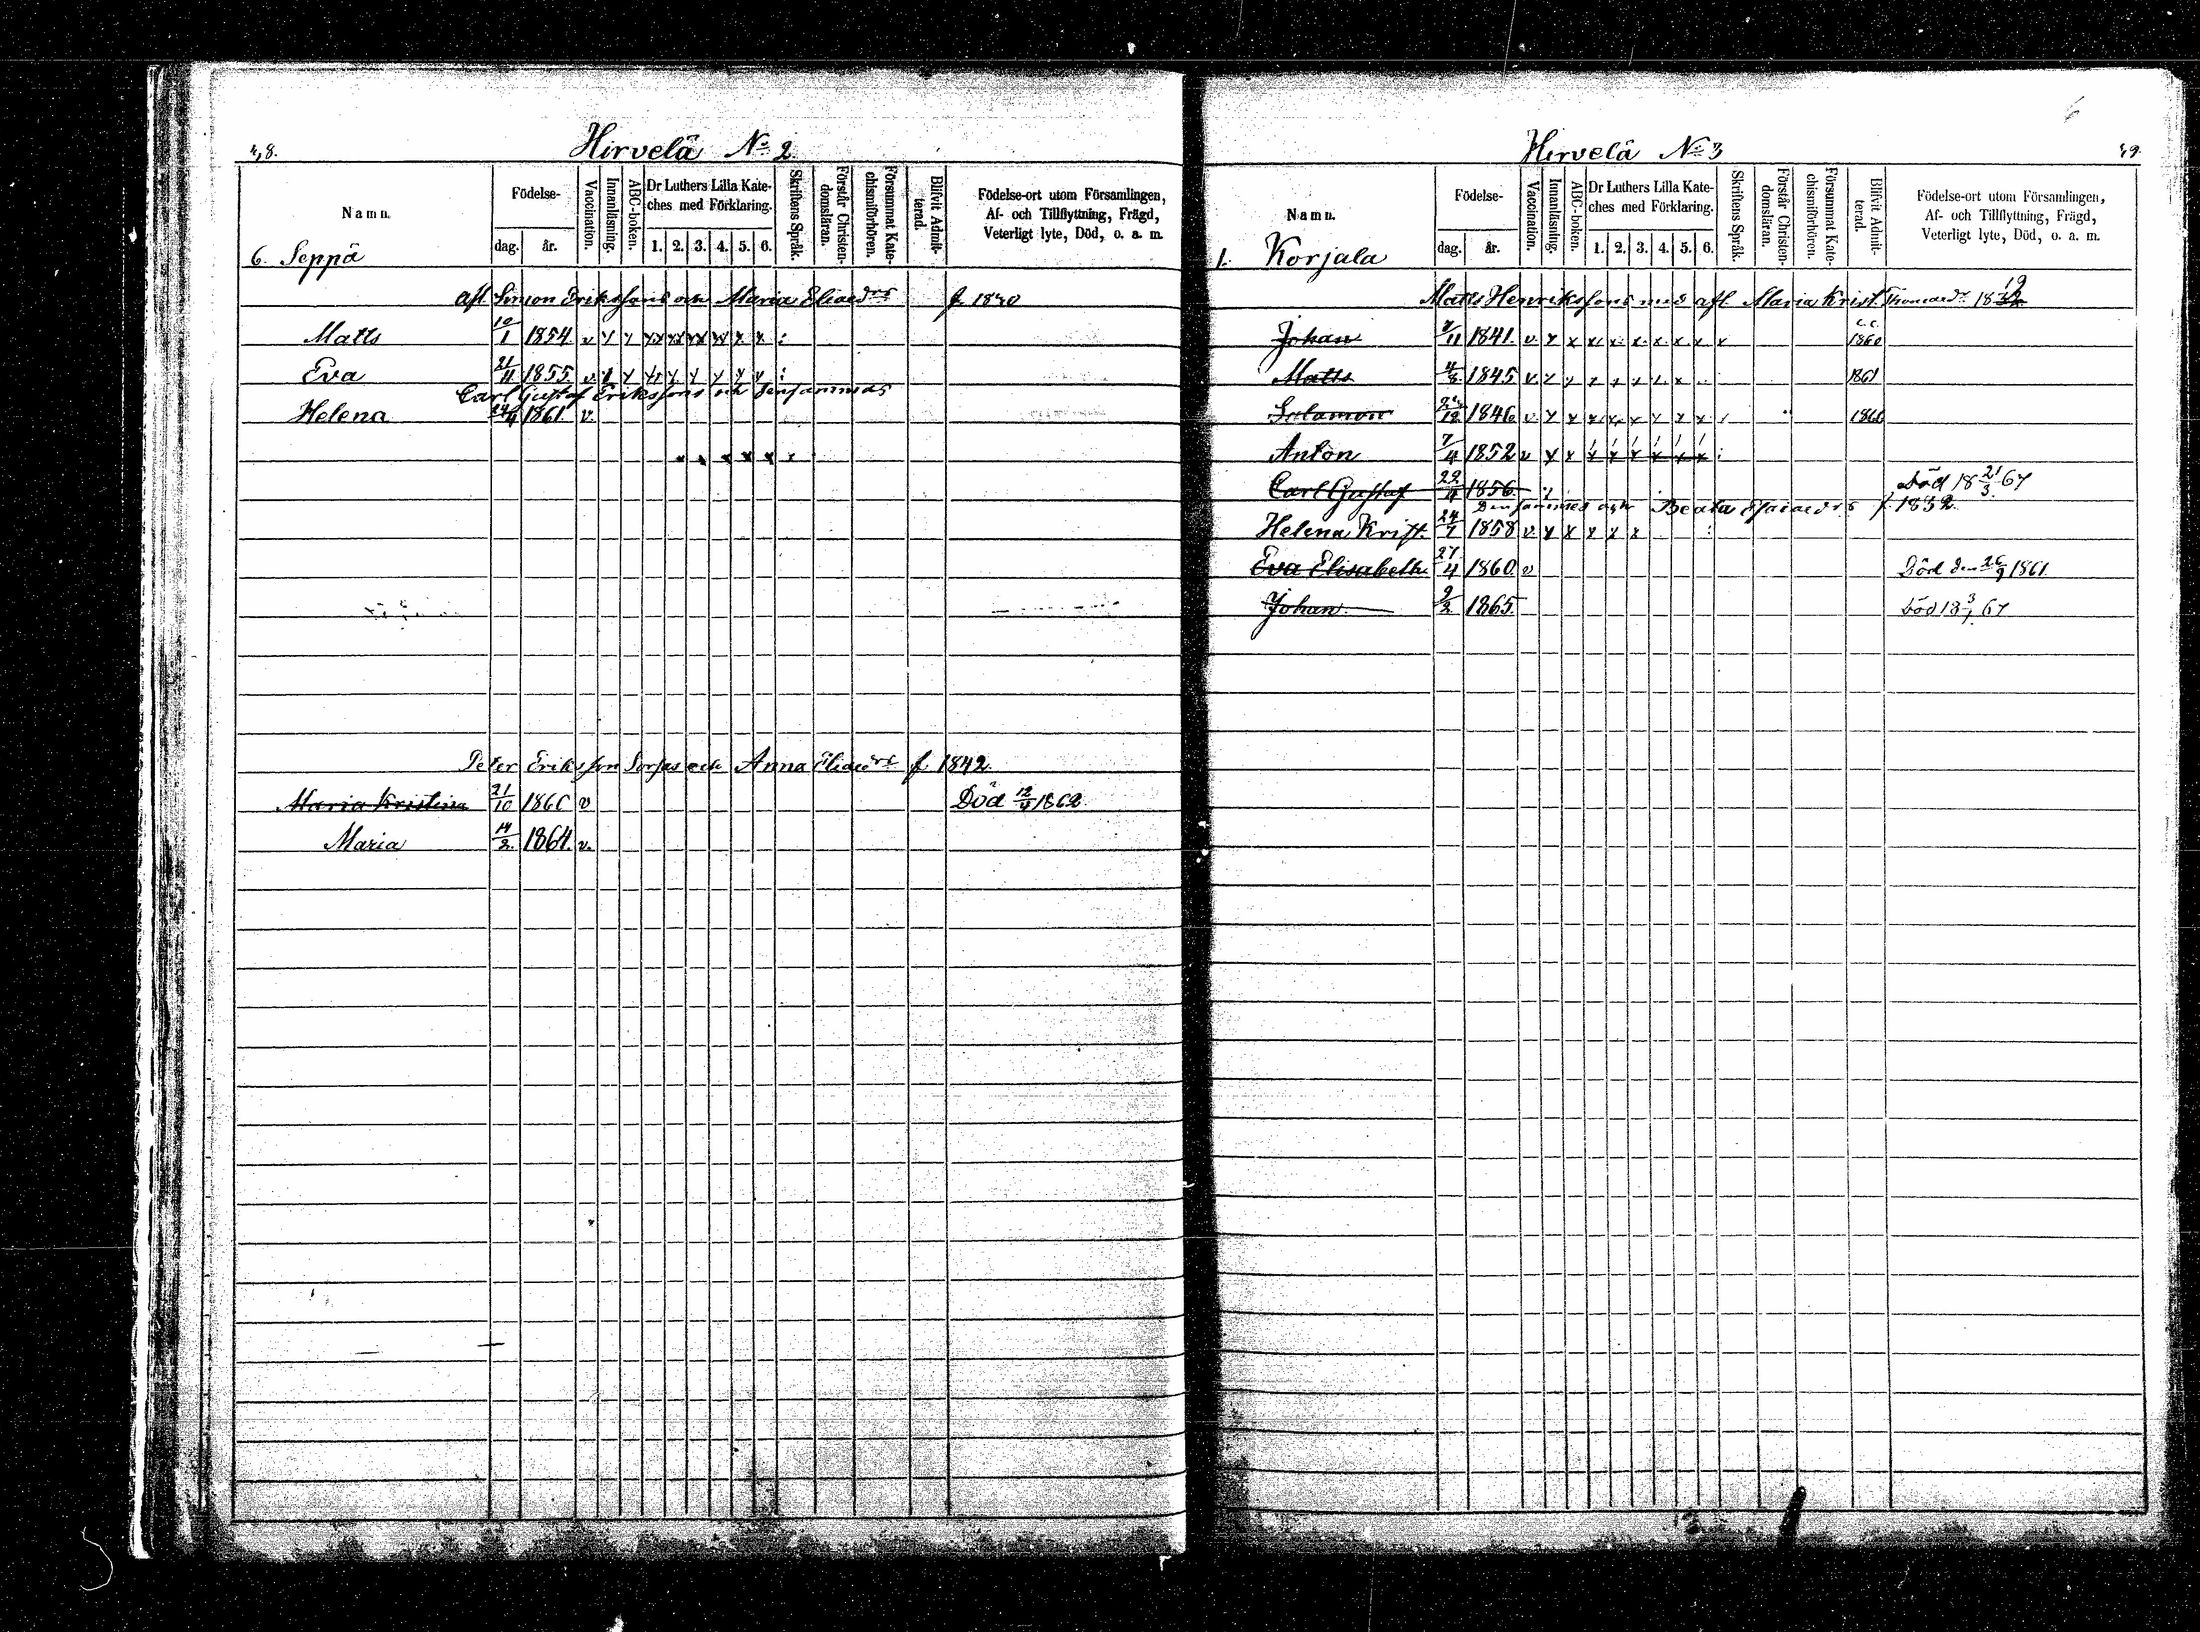 48.
Hirvelä No 2
Namn.
Födelse-
dag. år.
Vaccination.
Innanläsning.
ABC-boken.
Dr Luthers Lilla Kate-
ches med Förklaring.
1. 2. 3. 4. 5. 6.
Skriftens Språk.
Förstår Christen-
domsläran.
Försummat Kate-
chismiförhören.
Blifvit Admit-
terad.
Födelse-ort utom Församlingen,
Af- och Tillflyttning, Frägd,
Veterligt lyte, Död, o. a. m.
6. Seppä
afl Simon Erikssons och Maria Eliaedrs f 1830
Matts 10/1 1854. v x x xx xx xx xx x x :
Eva 21/11 1855. v x x x x x x x x :
Carl Gustaf Erikssons och densammas
Helena 24/4 1861. v.
x x x x x x
Peter Eriksson Sorsas och Anna Eliaedrs f 1842.
Maria Kristina 21/10 1860 v Död 12/4 1862
Maria 14/2. 1864. v.
6
Hirvelä No 3
49
Namn.
Födelse-
dag. år.
Vaccination.
Innanläsning.
ABC-boken.
Dr Luthers Lilla Kate-
ches med Förklaring.
1. 2. 3. 4. 5. 6.
Skriftens Språk.
Förstår Christen-
domsläran.
Försummat Kate-
chismiförhören.
Blifvit Admit-
terad.
Födelse-ort utom Församlingen,
Af- och Tillflyttning, Frägd,
Veterligt lyte, Död, o. a. m.
1. Korjala
Matts Henrikssons med afl Maria Krist. Thomaedr 18 19
Johan 7/11 1841. v. x x x x x x x x x 1860
Matts 4/8 1845 v. x x x x x x x 1861
Salamon /12 1846 v x x x x x x x x 1866
Anton 7/4 1852 v x x x x x x x x :
Carl Gustaf 22/4 1856. Död 18 21/3 67
Densammes och Beata Esaiaedrs f. 1832.
Helena Krist. 24/7 1858 v. x x x x x
Eva Elisabeth 27/4 1860. v Död den 26/9 1861.
Johan 9/2 1865. Död 18 3/1 67